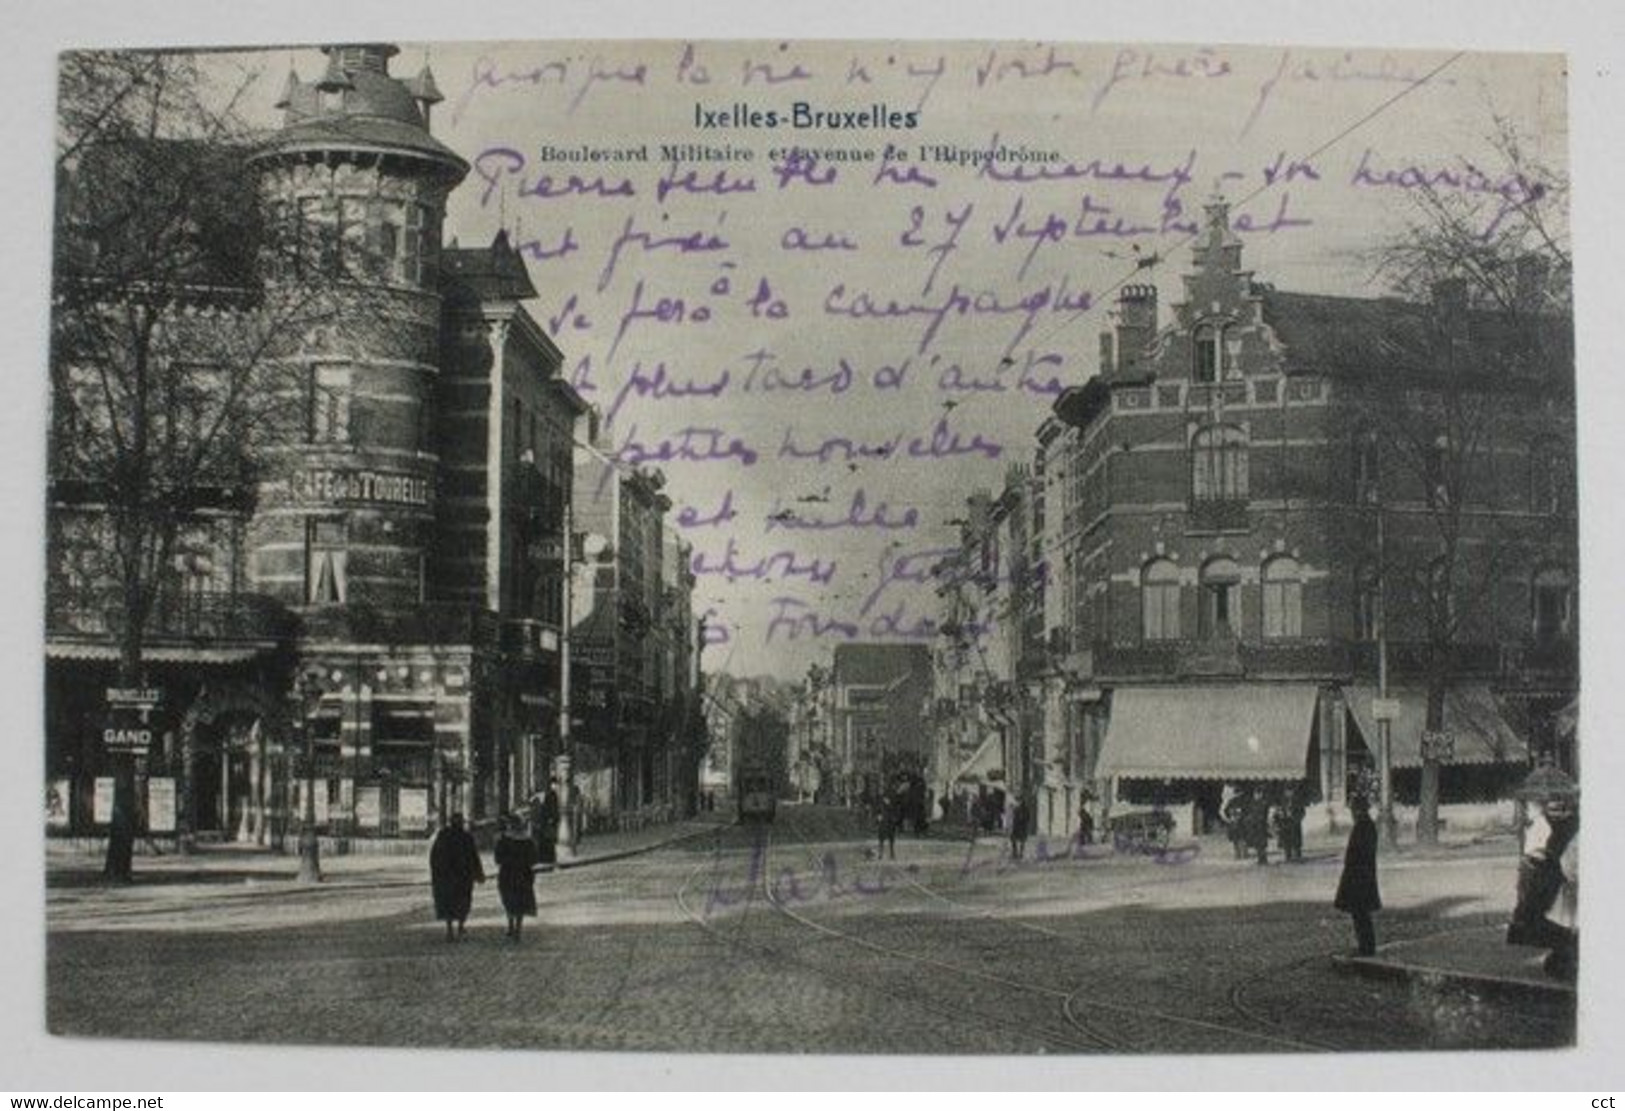 quoique la vie n'y soit guère facile
Ixelles-Bruxelles
Boulevard Militaire et avenue de l'Hippodrôme
Pierre semble très heureux - son mariage
est fixé au 27 Septembre et
se fera à la campagne
A plus tard d'autres
petites nouvelles
et mille
choses gentilles
à tous deux
Marie
CAFÉ de la TOURELLE
BRUXELLES
GAND
www.delcampe.net
cct